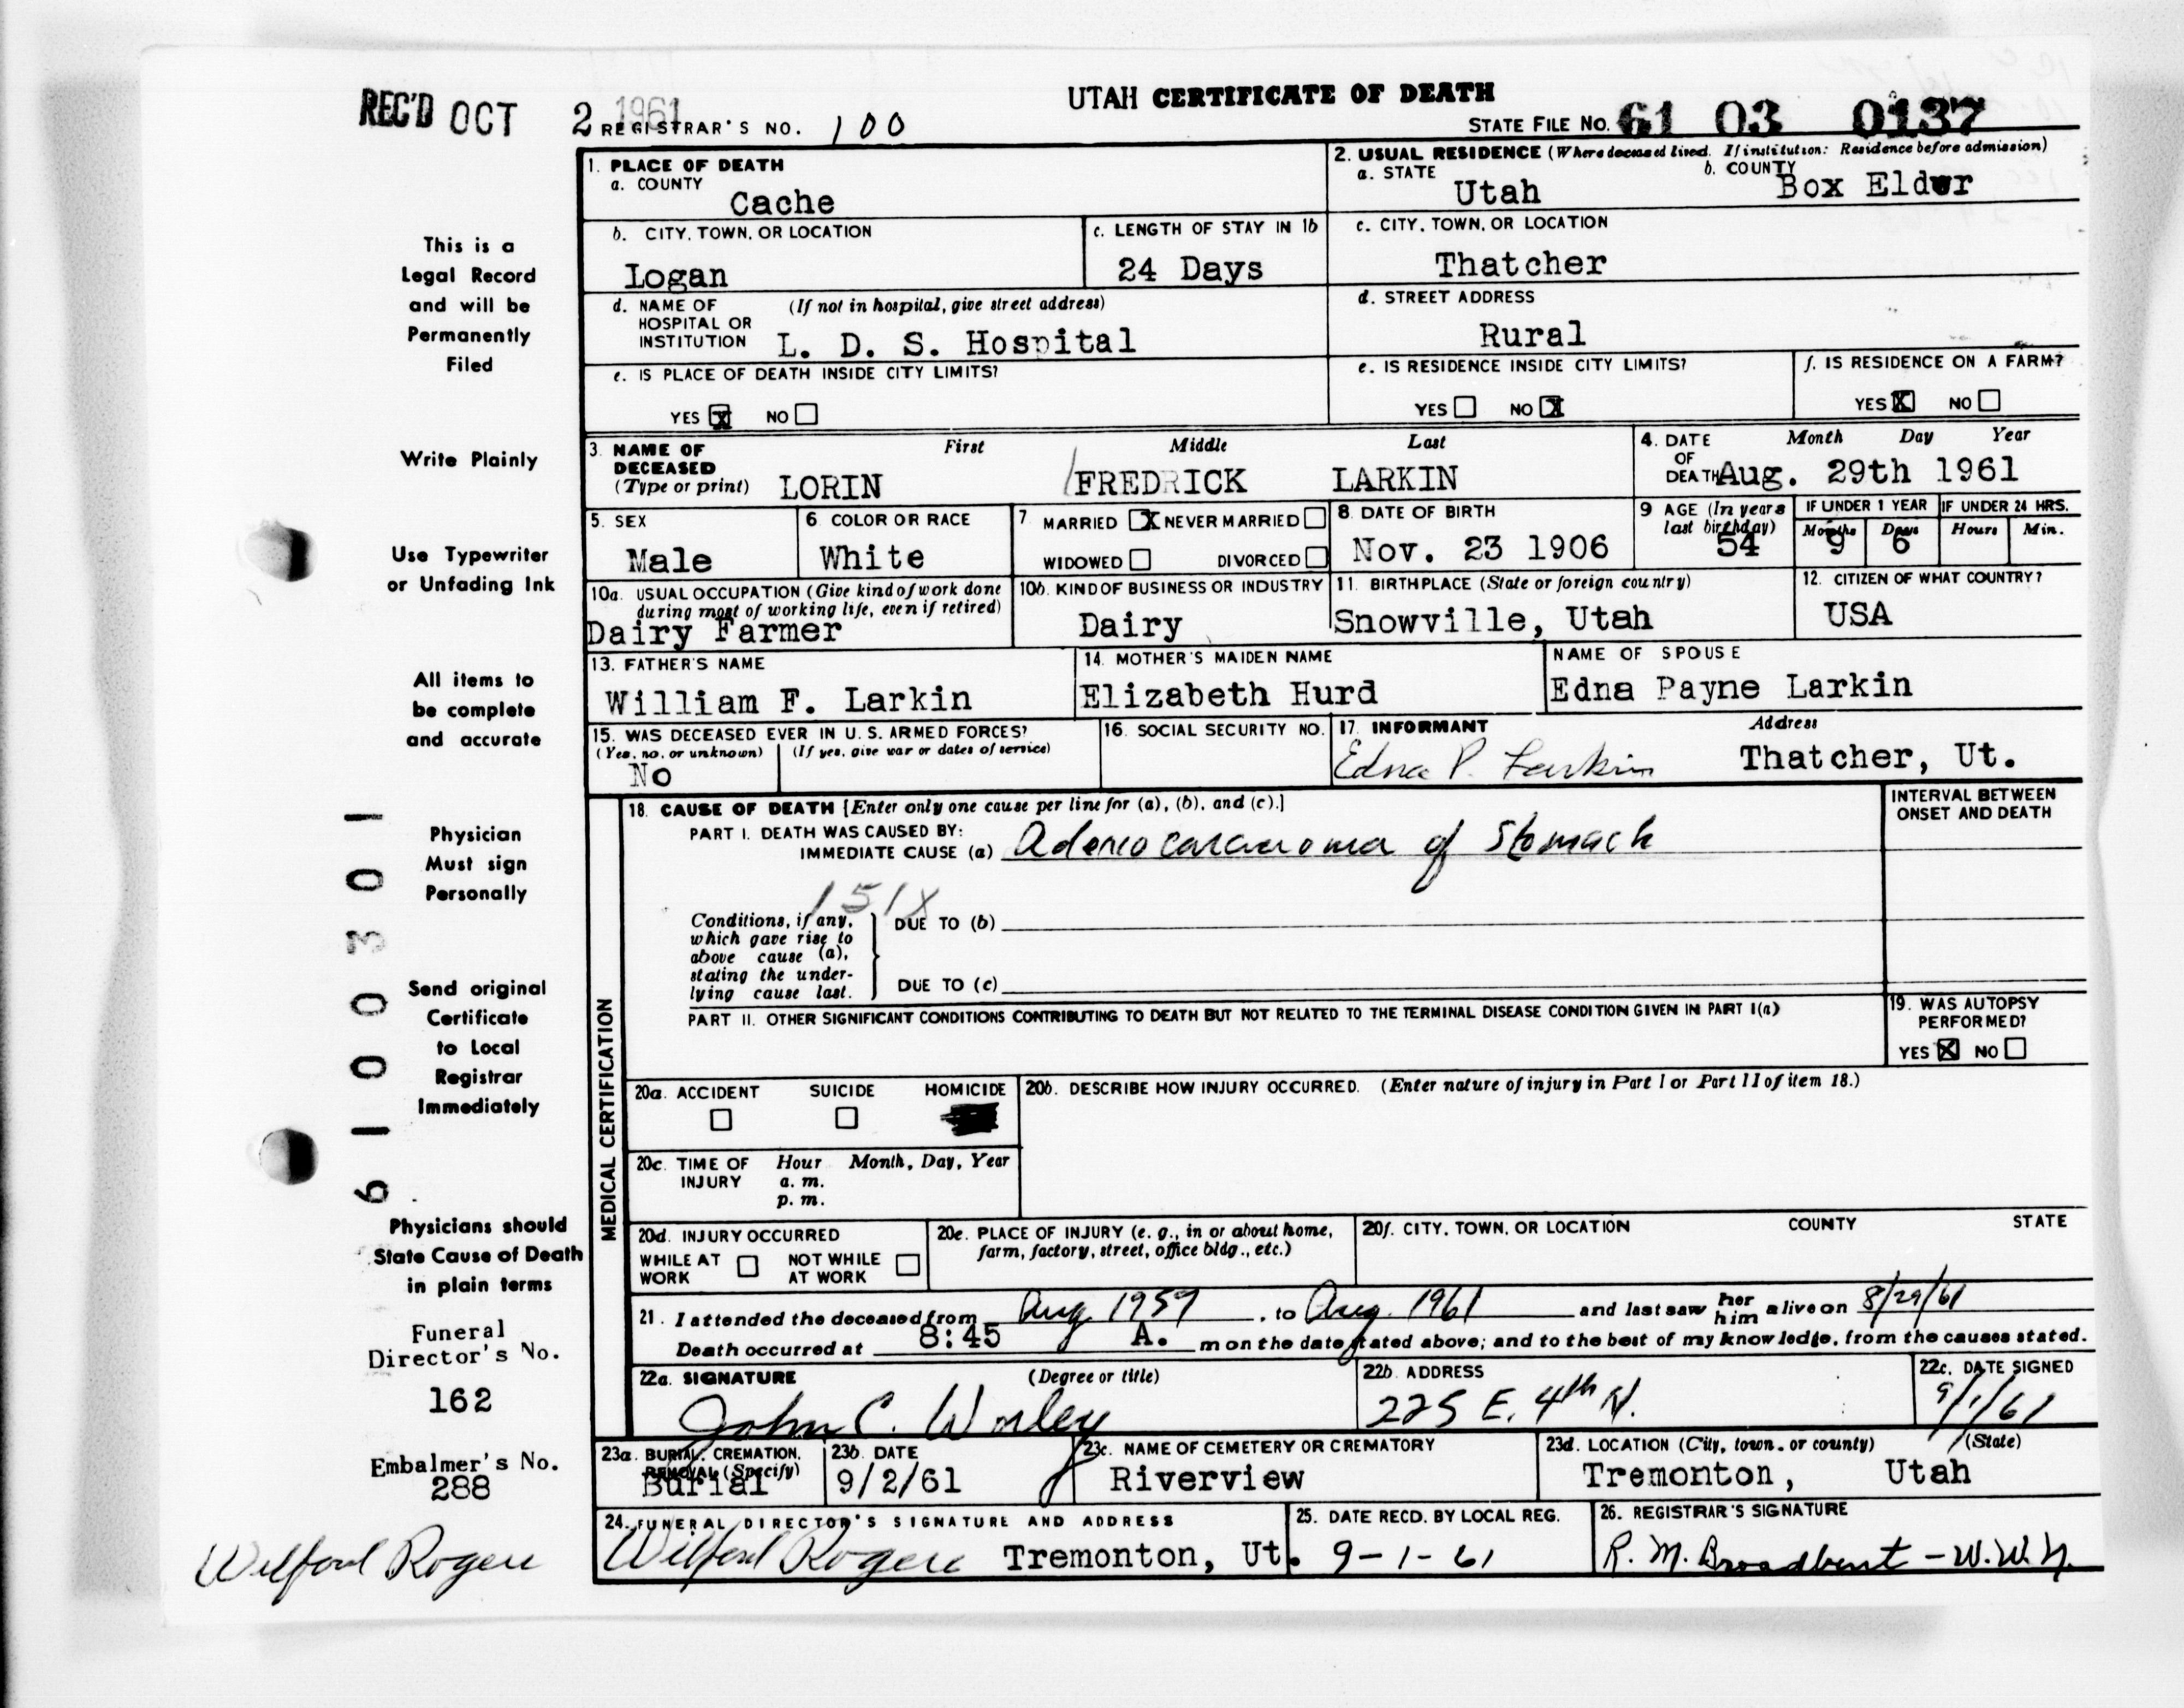 UTAH CERTIFICATE OF DEATH
REC'D OCT 2 1961
REGISTRAR'S NO. 100
STATE FILE NO. 61 03 0137
1. PLACE OF DEATH
a. COUNTY
Cache
2. USUAL RESIDENCE (Where deceased lived. If institution: Residence before admission)
a. STATE
Utah
b. COUNTY
Box Elder
b. CITY, TOWN, OR LOCATION
Logan
c. LENGTH OF STAY IN 1b
24 Days
c. CITY, TOWN, OR LOCATION
Thatcher
d. NAME OF HOSPITAL OR INSTITUTION (If not in hospital, give street address)
L. D. S. Hospital
d. STREET ADDRESS
Rural
e. IS PLACE OF DEATH INSIDE CITY LIMITS?
YES X NO
e. IS RESIDENCE INSIDE CITY LIMITS?
YES NO X
f. IS RESIDENCE ON A FARM?
YES X NO
3. NAME OF DECEASED (Type or print)
First Middle Last
LORIN FREDRICK LARKIN
4. DATE OF DEATH
Month Day Year
Aug. 29th 1961
5. SEX
Male
6. COLOR OR RACE
White
7. MARRIED X NEVER MARRIED
WIDOWED DIVORCED
8. DATE OF BIRTH
Nov. 23 1906
9. AGE (In years last birthday)
54
IF UNDER 1 YEAR
Months Days
9 6
IF UNDER 24 HRS.
Hours Min.
10a. USUAL OCCUPATION (Give kind of work done during most of working life, even if retired)
Dairy Farmer
10b. KIND OF BUSINESS OR INDUSTRY
Dairy
11. BIRTHPLACE (State or foreign country)
Snowville, Utah
12. CITIZEN OF WHAT COUNTRY?
USA
13. FATHER'S NAME
William F. Larkin
14. MOTHER'S MAIDEN NAME
Elizabeth Hurd
NAME OF SPOUSE
Edna Payne Larkin
15. WAS DECEASED EVER IN U.S. ARMED FORCES?
(Yes, no, or unknown) (If yes, give war or dates of service)
No
16. SOCIAL SECURITY NO.
17. INFORMANT Address
Edna P. Larkin Thatcher, Ut.
18. CAUSE OF DEATH [Enter only one cause per line for (a), (b), and (c).]
INTERVAL BETWEEN ONSET AND DEATH
PART I. DEATH WAS CAUSED BY:
IMMEDIATE CAUSE (a) Adenocarcinoma of Stomach
151X
Conditions, if any, which gave rise to above cause (a), stating the underlying cause last.
DUE TO (b)
DUE TO (c)
PART II. OTHER SIGNIFICANT CONDITIONS CONTRIBUTING TO DEATH BUT NOT RELATED TO THE TERMINAL DISEASE CONDITION GIVEN IN PART I(a)
19. WAS AUTOPSY PERFORMED?
YES X NO
MEDICAL CERTIFICATION
20a. ACCIDENT SUICIDE HOMICIDE
20b. DESCRIBE HOW INJURY OCCURRED. (Enter nature of injury in Part I or Part II of item 18.)
20c. TIME OF INJURY
Hour Month, Day, Year
a. m.
p. m.
20d. INJURY OCCURRED
WHILE AT WORK NOT WHILE AT WORK
20e. PLACE OF INJURY (e. g., in or about home, farm, factory, street, office bldg., etc.)
20f. CITY, TOWN, OR LOCATION COUNTY STATE
21. I attended the deceased from Aug 1959, to Aug. 1961 and last saw her him alive on 8/29/61
Death occurred at 8:45 A. m on the date stated above; and to the best of my knowledge, from the causes stated.
22a. SIGNATURE (Degree or title)
John C. Worley
22b. ADDRESS
225 E. 4th N.
22c. DATE SIGNED
9/1/61
23a. BURIAL, CREMATION, REMOVAL (Specify)
Burial
23b. DATE
9/2/61
23c. NAME OF CEMETERY OR CREMATORY
Riverview
23d. LOCATION (City, town, or county) (State)
Tremonton, Utah
24. FUNERAL DIRECTOR'S SIGNATURE AND ADDRESS
Wilford Rogers Tremonton, Ut.
25. DATE RECD. BY LOCAL REG.
9-1-61
26. REGISTRAR'S SIGNATURE
R. M. Broadbent - W.W.N.
This is a
Legal Record
and will be
Permanently
Filed
Write Plainly
Use Typewriter
or Unfading Ink
All items to
be complete
and accurate
Physician
Must sign
Personally
Send original
Certificate
to Local
Registrar
Immediately
6100301
Physicians should
State Cause of Death
in plain terms
Funeral
Director's No.
162
Embalmer's No.
288
Wilford Rogers